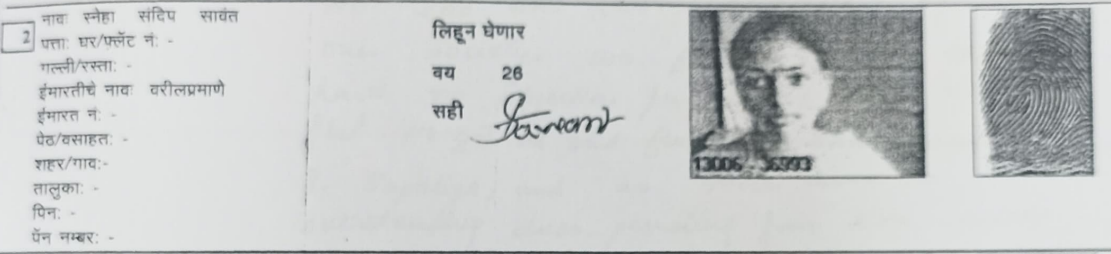 2
नावः स्नेहा संदिप सावंत
पत्ताः घर/फ्लॅट नं: -
गल्ली/रस्ता: -
ईमारतीचे नावः वरीलप्रमाणे
ईमारत नं: -
पेठ/वसाहत: -
शहर/गाव:-
तालुका: -
पिन: -
पॅन नम्बर: -
लिहून घेणार
वय 26
सही Sawant
13006 - 36993